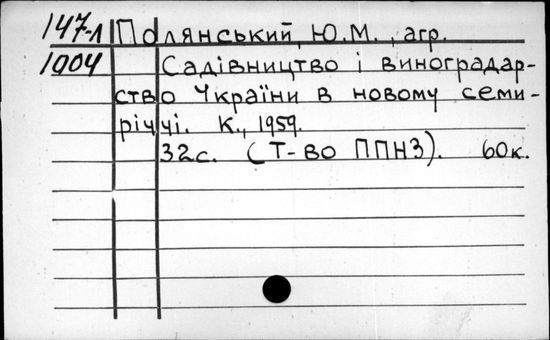 147-л Полянський, Ю.М., агр.
1904 Садівництво і виноградар-
ство України в новому семи-
річчі. К., 1959.
32с. (Т-во ППНЗ). 60к.